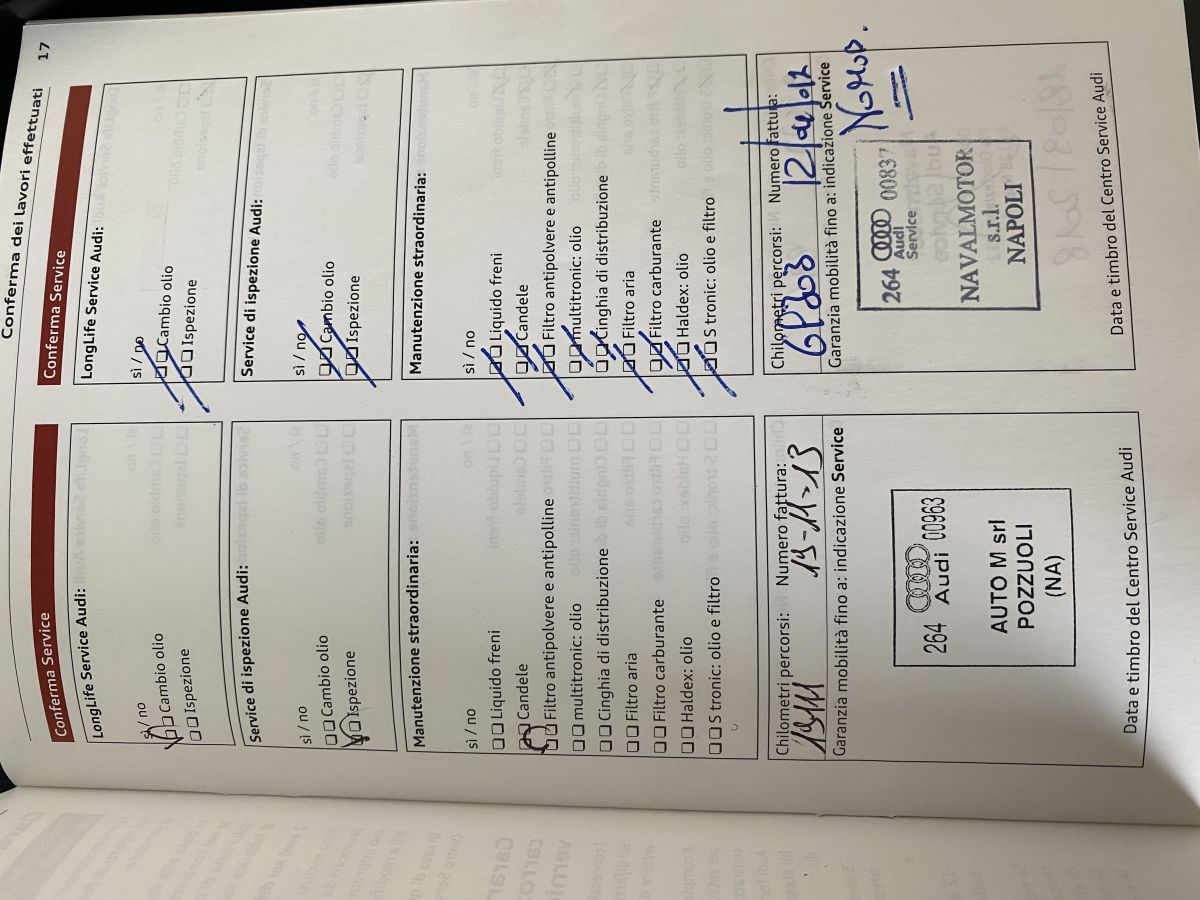 Conferma dei lavori effettuati
17
Conferma Service
LongLife Service Audi:
sì / no
Cambio olio
Ispezione
Service di ispezione Audi:
sì / no
Cambio olio
Ispezione
Manutenzione straordinaria:
sì / no
Liquido freni
Candele
Filtro antipolvere e antipolline
multitronic: olio
Cinghia di distribuzione
Filtro aria
Filtro carburante
Haldex: olio
S tronic: olio e filtro
Chilometri percorsi: Numero fattura:
19-11-13
Garanzia mobilità fino a: indicazione Service
264 Audi 00963
AUTO M srl
POZZUOLI
(NA)
Data e timbro del Centro Service Audi
Conferma Service
LongLife Service Audi:
sì / no
Cambio olio
Ispezione
Service di ispezione Audi:
sì / no
Cambio olio
Ispezione
Manutenzione straordinaria:
sì / no
Liquido freni
Candele
Filtro antipolvere e antipolline
multitronic: olio
Cinghia di distribuzione
Filtro aria
Filtro carburante
Haldex: olio
S tronic: olio e filtro
Chilometri percorsi: Numero fattura:
Garanzia mobilità fino a: indicazione Service
264 Audi Service 00837
NAVALMOTOR
s.r.l.
NAPOLI
Data e timbro del Centro Service Audi